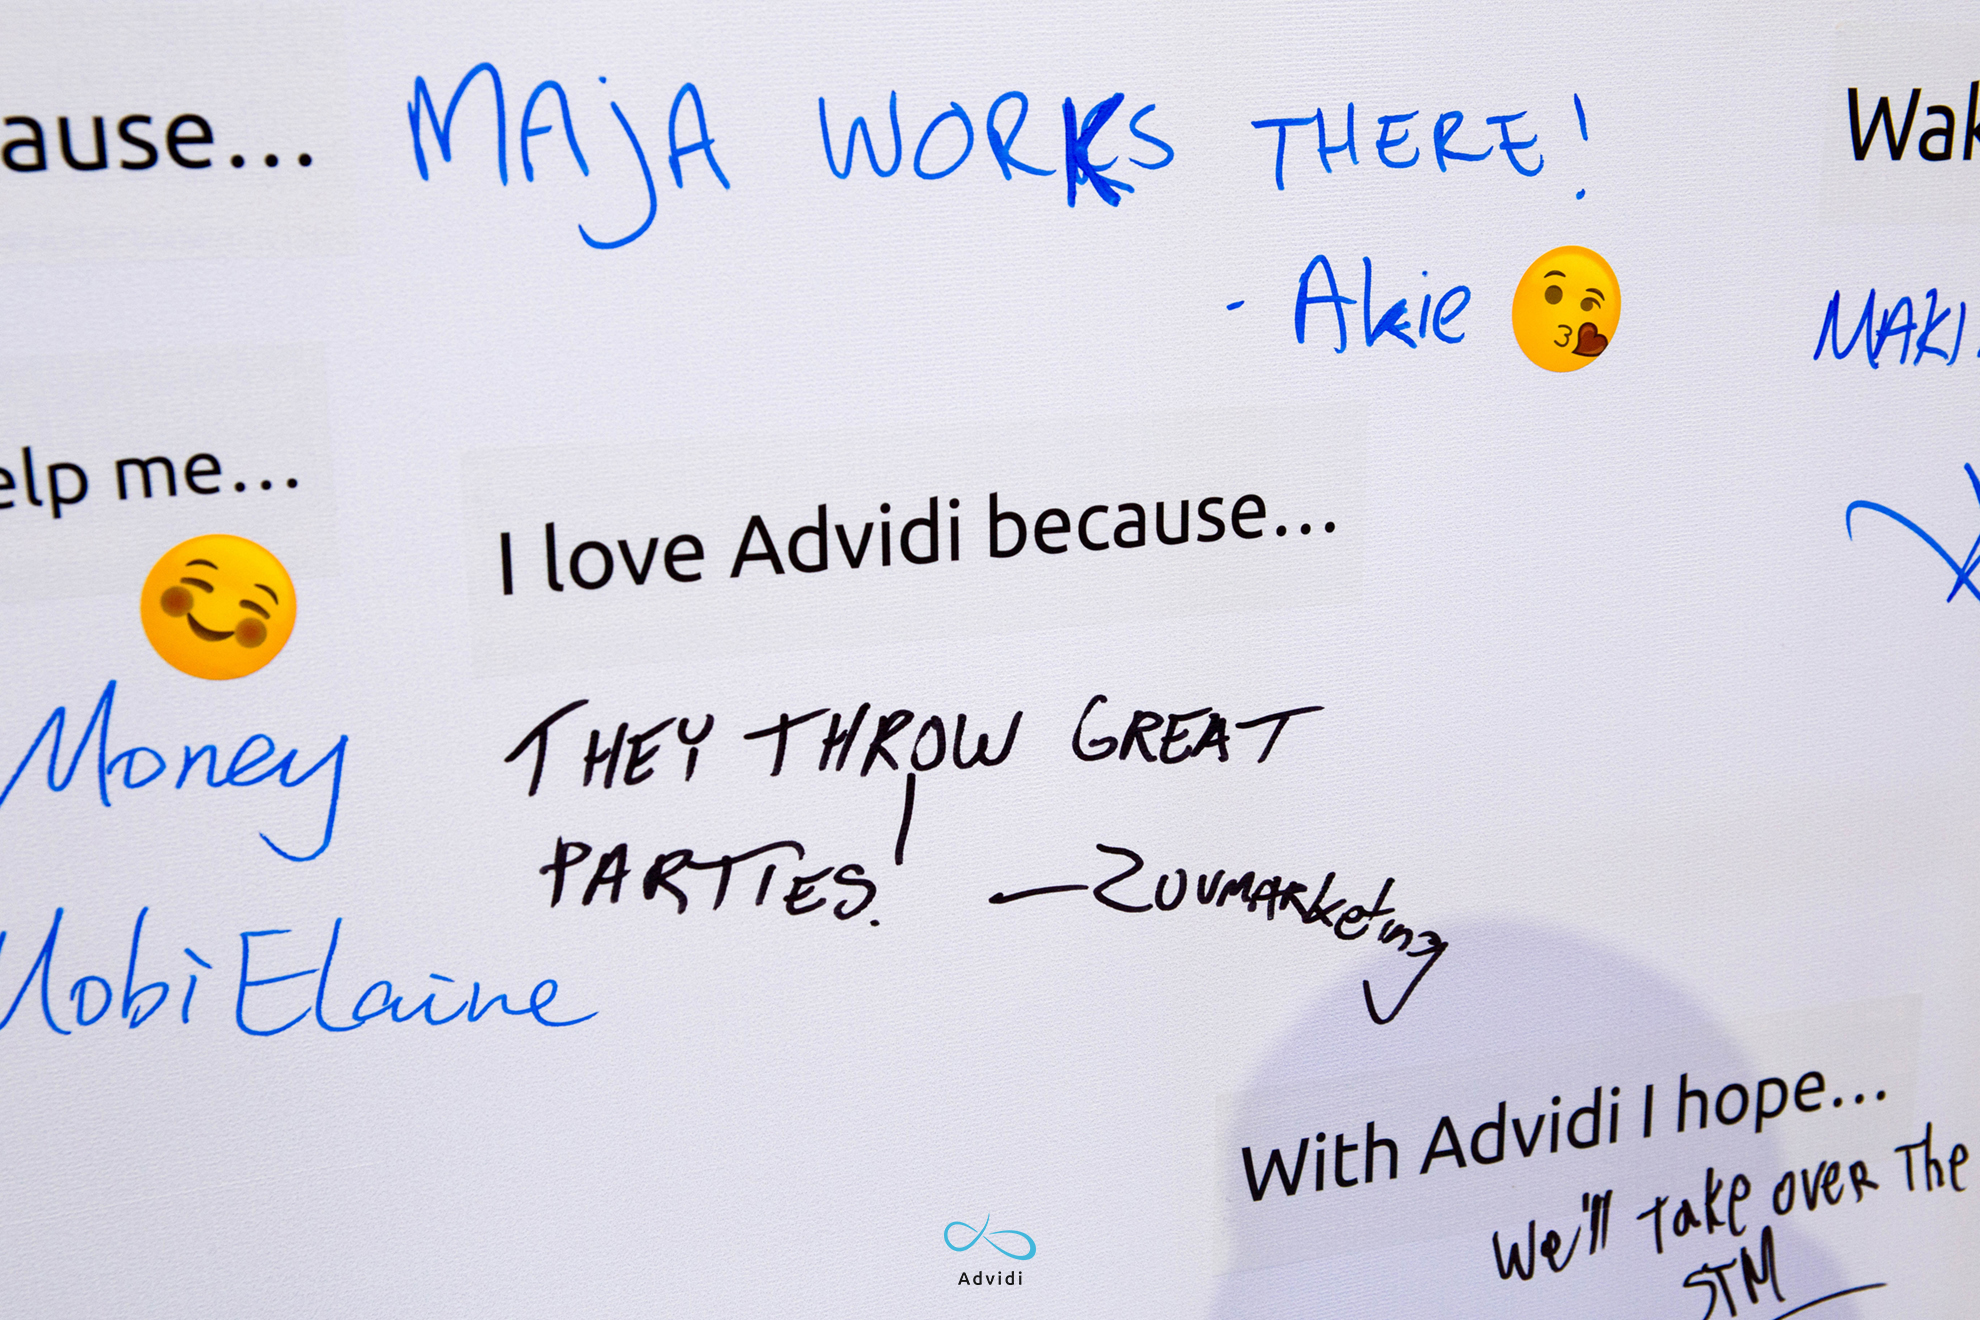 ause... MAJA WORKS THERE!
- Akie
Wak
MAKI
elp me...
Money
Mobi Elaine
I love Advidi because...
THEY THROW GREAT
PARTIES.
With Advidi I hope...
We'll Take over The
STM
Advidi